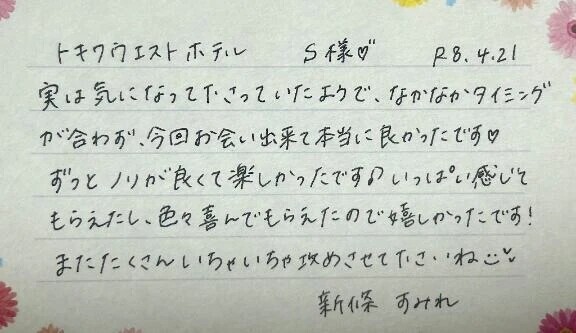 トキワウエストホテル S様♡ R8.4.21
実は気になって下さっていたようで、なかなかタイミング
が合わず、今回お会い出来て本当に良かったです♡
ずっとノリが良くて楽しかったです♪いっぱい感じて
もらえたし、色々喜んでもらえたので嬉しかったです!
またたくさんいちゃいちゃ攻めさせて下さいね
新條 すみれ